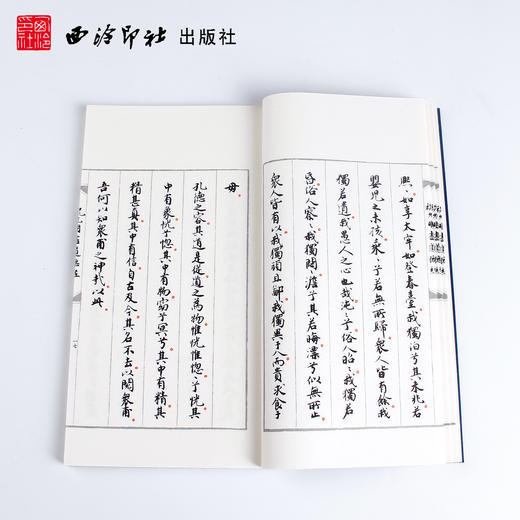 西泠印社出版社
熙。如享太牢。如登春臺。我獨泊兮其未兆。若
嬰兒之未孩。乘〻兮若無所歸。衆人皆有餘。我
獨若遺。我愚人之心也哉。沌〻兮。俗人昭〻。我獨若
昏。俗人察〻。我獨悶〻。澹兮其若晦。漂兮似無所止。
衆人皆有以。我獨頑且鄙。我獨異于人。而貴求食于
母。
孔德之容。其道是從。道之為物。惟恍惟惚。惚兮恍。其
中有象。恍兮惚。其中有物。窈兮冥兮。其中有精。其
精甚真。其中有信。自古及今。其名不去。以閱衆甫。
吾何以知衆甫之神哉。以此。
十七